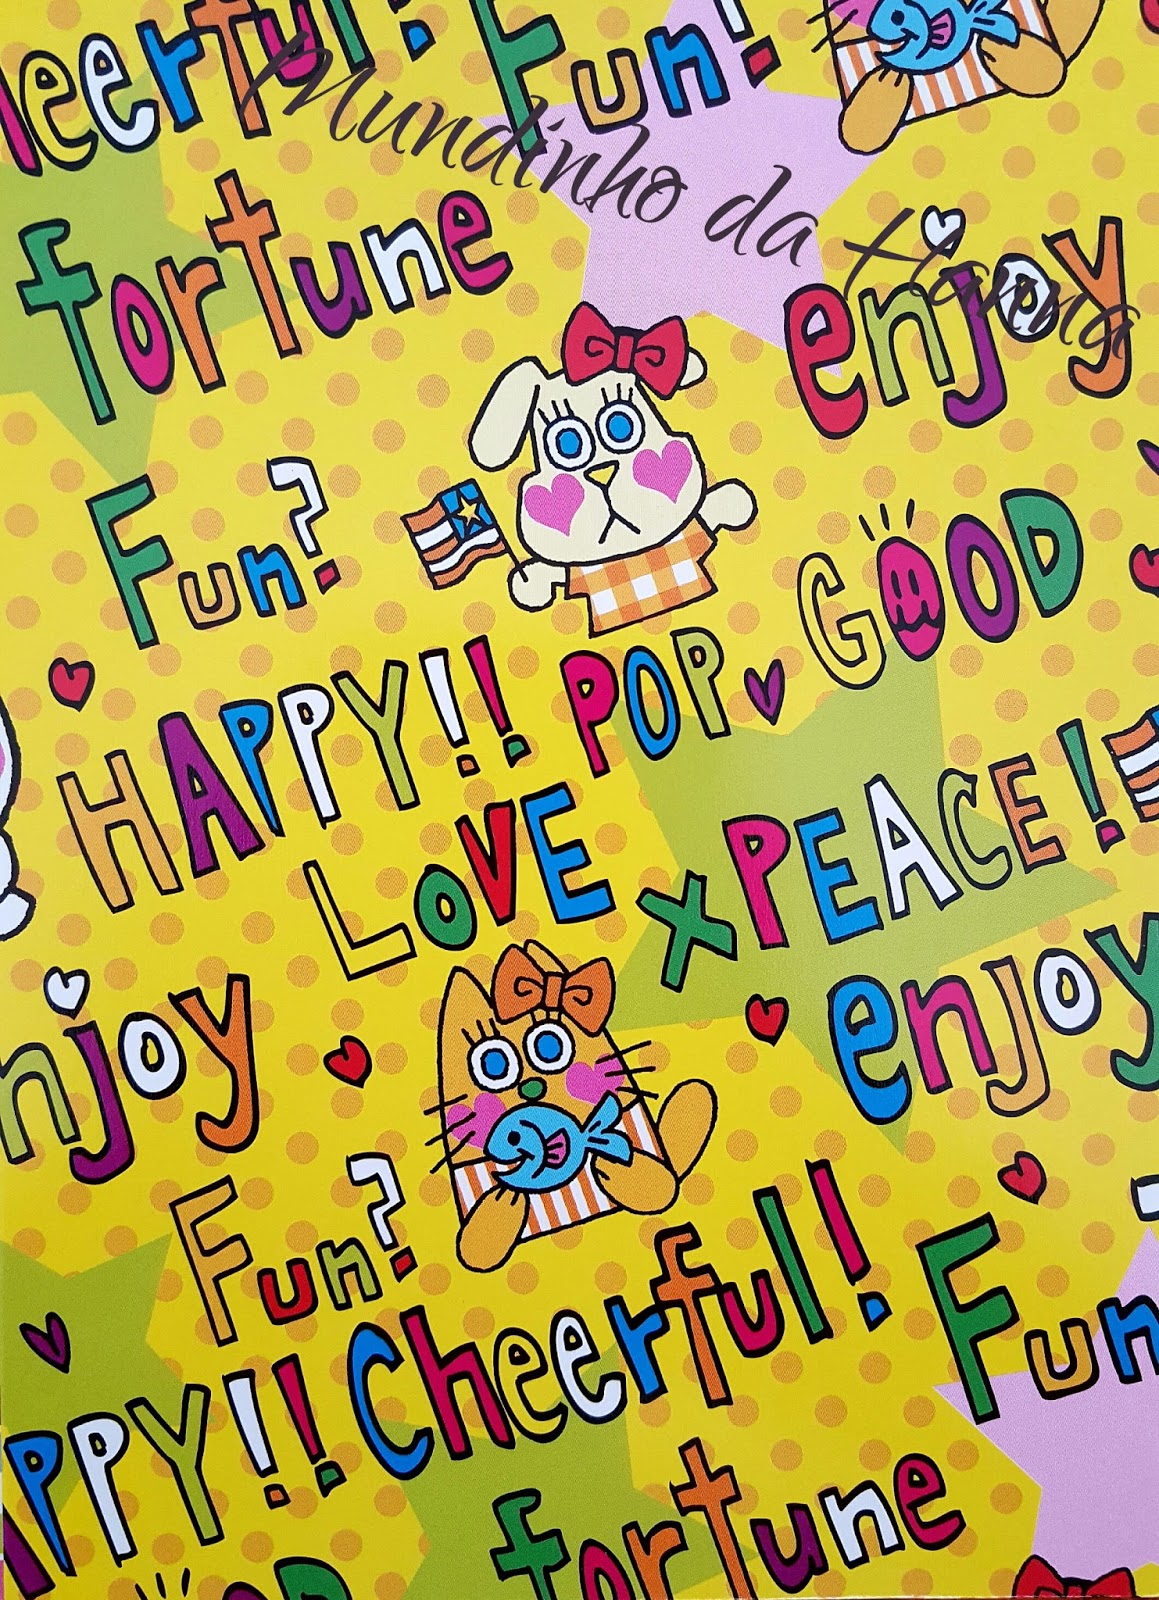 heerful! Fun!
Mundinho da Hanna
fortune
enjoy
Fun?
GOOD
HAPPY!! POP
LOVE x PEACE!
njoy
enjoy
Fun?
Cheerful! Fun
APPY!!
fortune